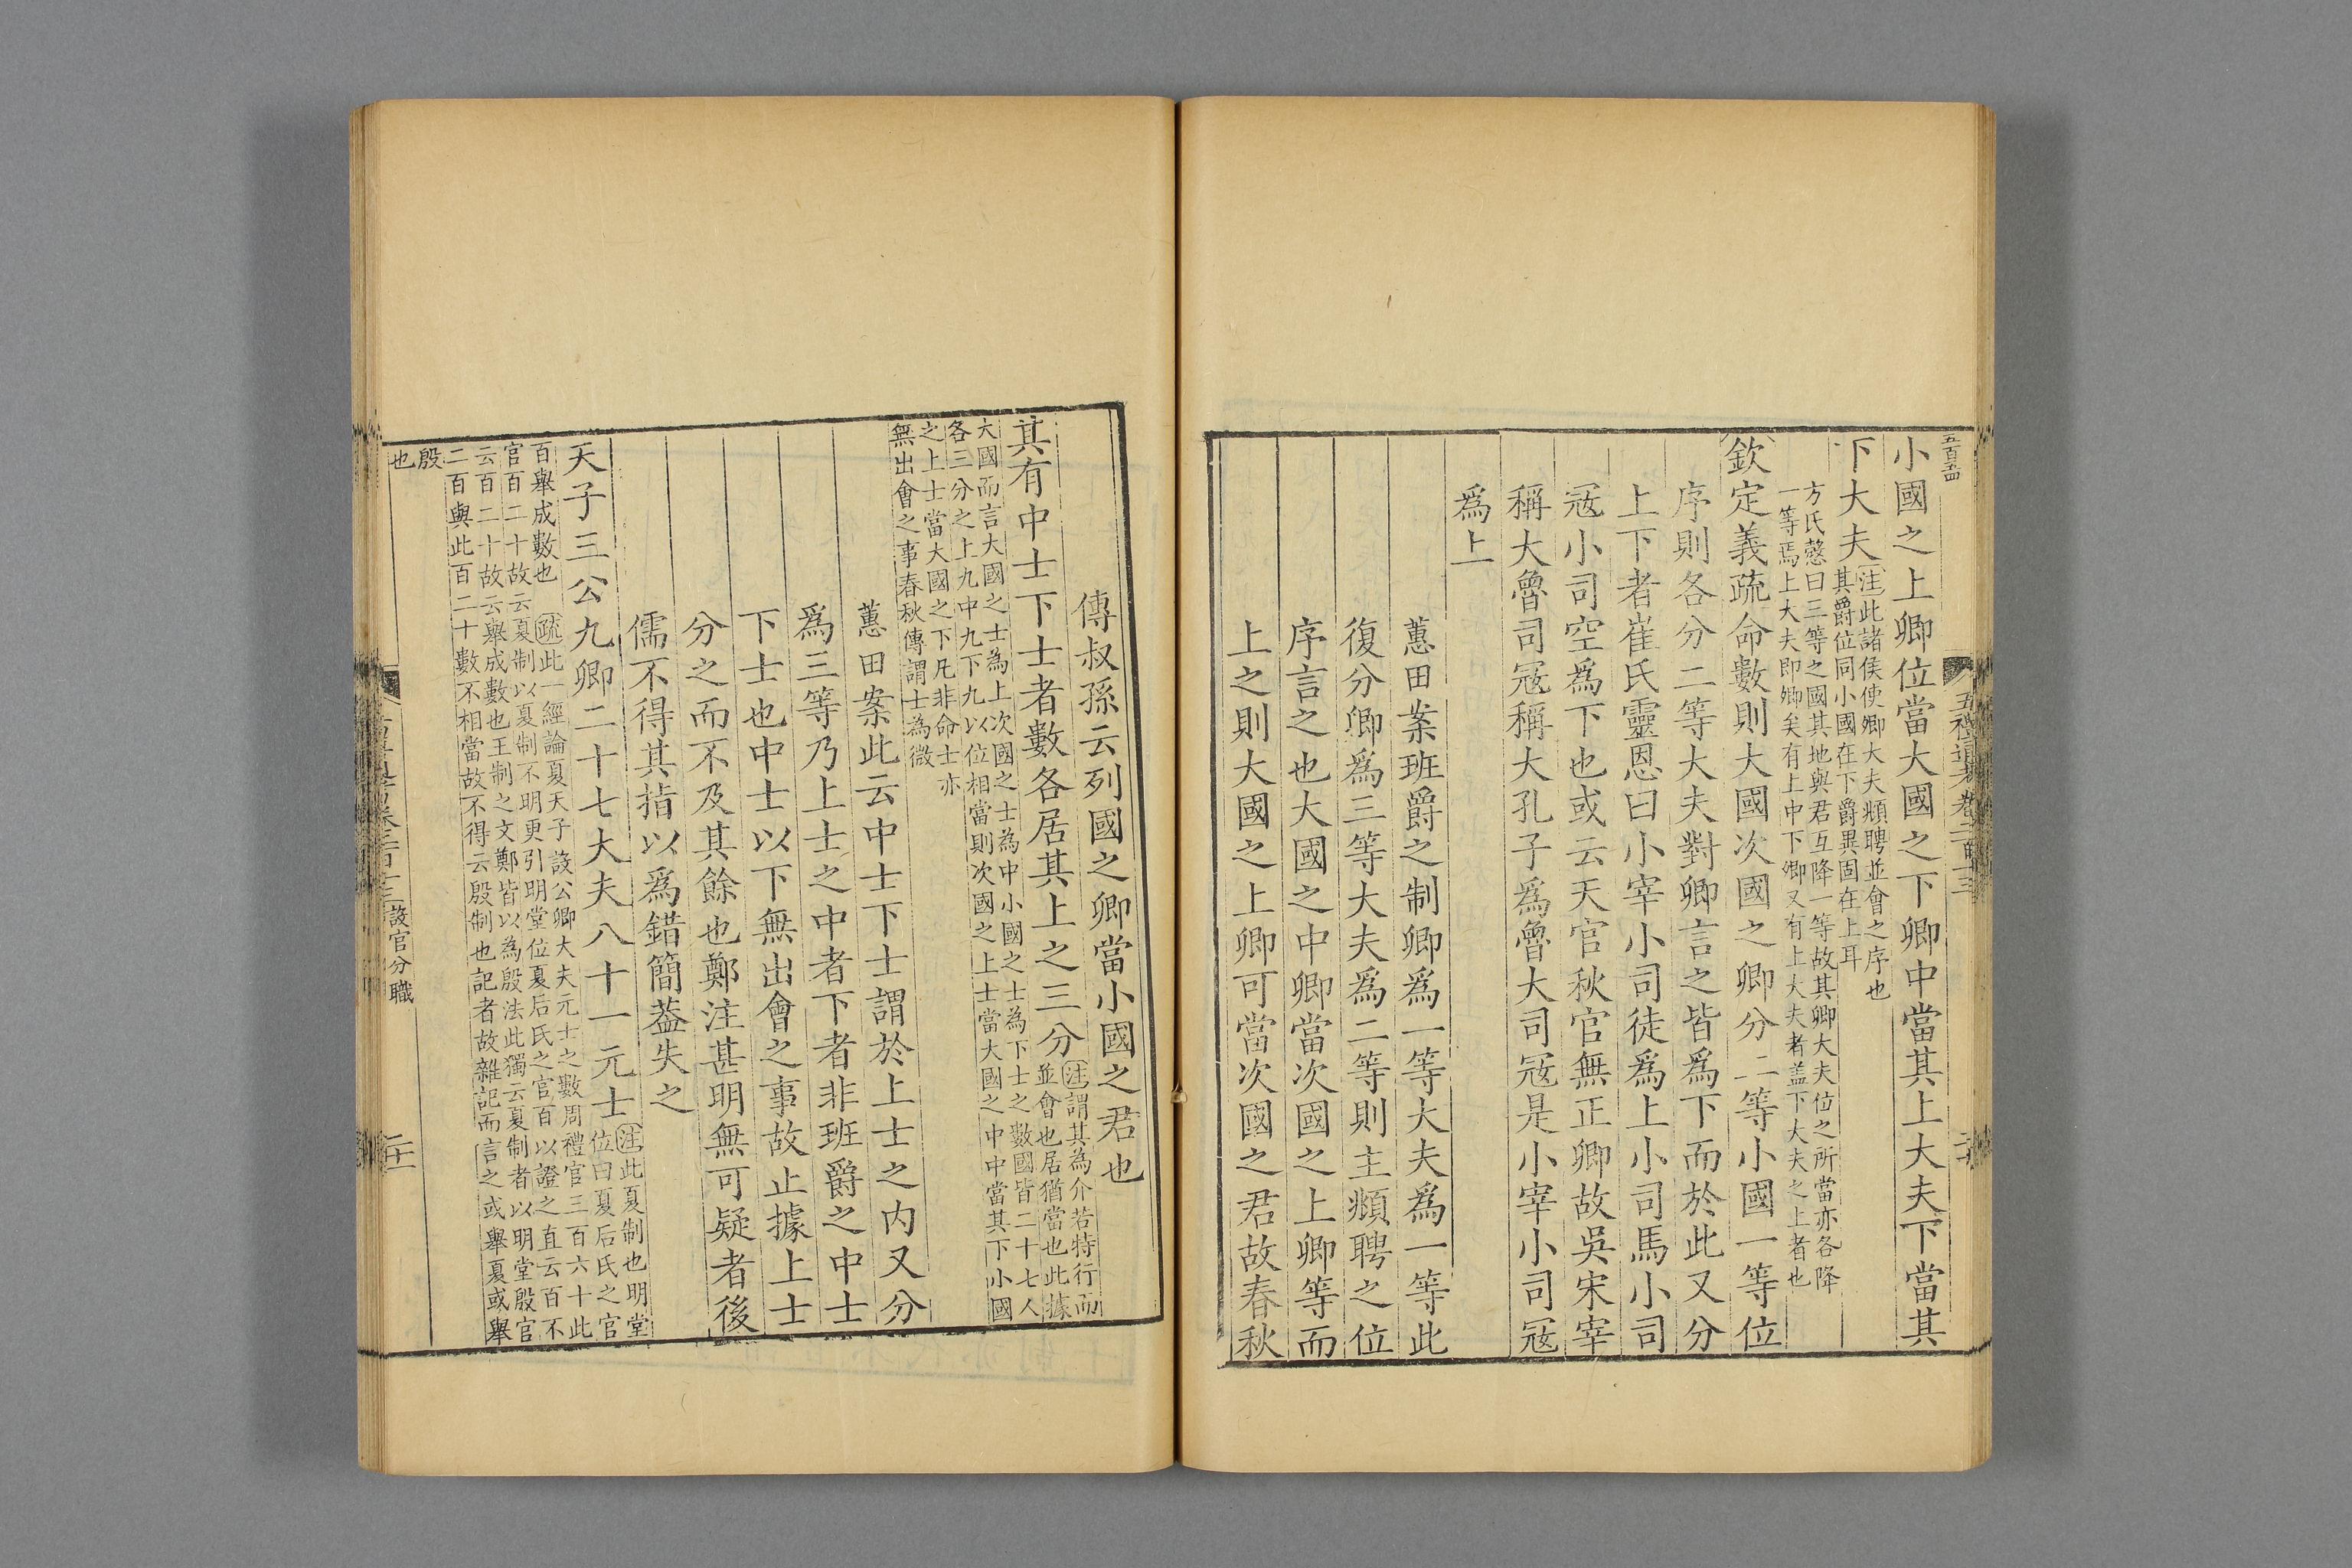 五百四
小國之上卿位當大國之下卿中當其上大夫下當其
下大夫注此諸侯使卿大夫頫聘並會之序也
其爵位同小國在下爵異固在上耳
方氏慤曰三等之國其地與君互降一等故其卿大夫位之所當亦各降
一等焉上大夫即卿矣有上中下卿又有上大夫者盖下大夫之上者也
欽定義疏命數則大國次國之卿分二等小國一等位
序則各分二等大夫對卿言之皆爲下而於此又分
上下者崔氏靈恩曰小宰小司徒爲上小司馬小司
寇小司空爲下也或云天官秋官無正卿故吳宋宰
稱大魯司寇稱大孔子爲魯大司寇是小宰小司寇
爲上
蕙田案班爵之制卿爲一等大夫爲一等此
復分卿爲三等大夫爲二等則主頫聘之位
序言之也大國之中卿當次國之上卿等而
上之則大國之上卿可當次國之君故春秋
傳叔孫云列國之卿當小國之君也
其有中士下士者數各居其上之三分注謂其為介若特行而
並會也居猶當也此據
大國而言大國之士為上次國之士為中小國之士為下士之數國皆二十七人
各三分之上九中九下九以位相當則次國之上士當大國之中中當其下小國
之上士當大國之下凡非命士亦
無出會之事春秋傳謂士為微
蕙田案此云中士下士謂於上士之内又分
爲三等乃上士之中者下者非班爵之中士
下士也中士以下無出會之事故止據上士
分之而不及其餘也鄭注甚明無可疑者後
儒不得其指以爲錯簡葢失之
天子三公九卿二十七大夫八十一元士注此夏制也明堂
位曰夏后氏之官
百舉成數也 疏此一經論夏天子設公卿大夫元士之數周禮官三百六十此
官百二十故云夏制以夏制不明更引明堂位夏后氏之官百以證之直云百不
云百二十故云舉成數也王制之文鄭皆以為殷法此獨云夏制者以明堂殷官
二百與此百二十數不相當故不得云殷制也記者故雜記而言之或舉夏或舉
殷
也
設官分職